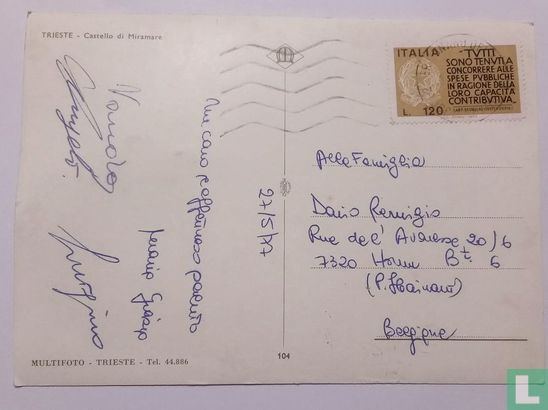 TRIESTE - Castello di Miramare
ITALIA
"TVTTI
SONO TENVTI A
CONCORRERE ALLE
SPESE PVBBLICHE
IN RAGIONE DELLA
LORO CAPACITÀ
CONTRIBVTIVA„
L. 120
27/5/77
Un caro e affettuoso saluto
Alla Famiglia
Dario Remigio
Rue de l' Avaresse 20/6
7320 Hornu Bt. 6
Belgique
MULTIFOTO - TRIESTE - Tel. 44.886
104